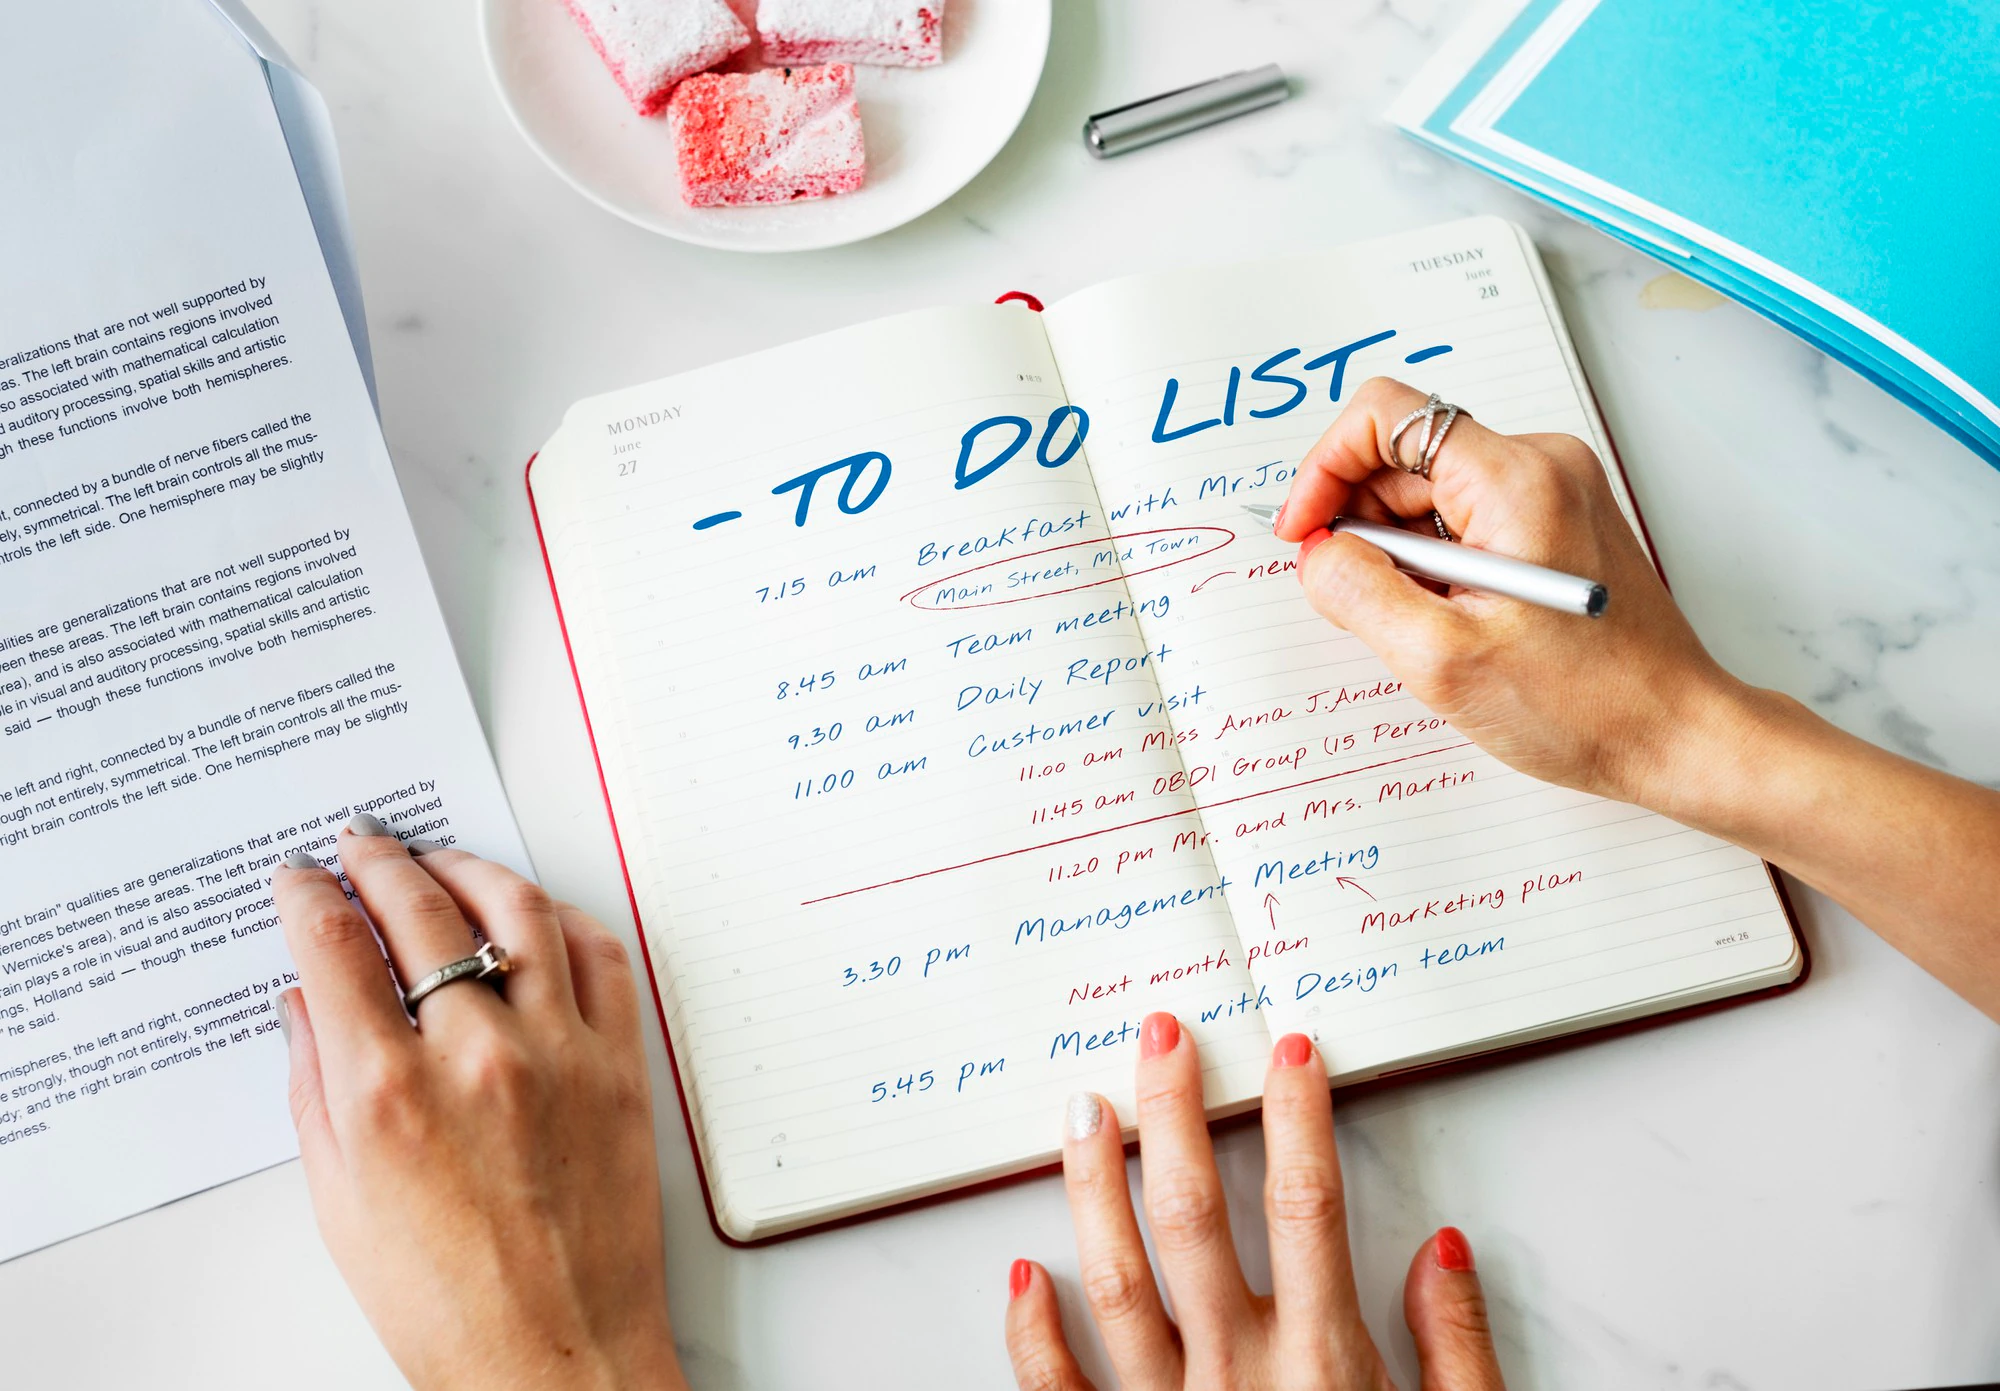 eralizations that are not well supported by
as. The left brain contains regions involved
so associated with mathematical calculation
d auditory processing, spatial skills and artistic
gh these functions involve both hemispheres.
t, connected by a bundle of nerve fibers called the
ely, symmetrical. The left brain controls all the mus-
ntrols the left side. One hemisphere may be slightly
alities are generalizations that are not well supported by
veen these areas. The left brain contains regions involved
rea), and is also associated with mathematical calculation
le in visual and auditory processing, spatial skills and artistic
said — though these functions involve both hemispheres.
he left and right, connected by a bundle of nerve fibers called the
ough not entirely, symmetrical. The left brain controls all the mus-
right brain controls the left side. One hemisphere may be slightly
ght brain" qualities are generalizations that are not well supported by
ferences between these areas. The left brain contains involved
Wernicke's area), and is also associated lculation
rain plays a role in visual and auditory proces stic
ngs, Holland said — though these function
" he said.
mispheres, the left and right, connected by a bu
e strongly, though not entirely, symmetrical.
dy; and the right brain controls the left side
edness.
MONDAY
June
27
TUESDAY
June
28
- TO DO LIST -
7.15 am Breakfast with Mr.Jo
Main Street, Mid Town
new
8.45 am Team meeting
9.30 am Daily Report
11.00 am Customer visit
11.00 am Miss Anna J.Ander
11.45 am OBDI Group (15 Perso
11.20 pm Mr. and Mrs. Martin
3.30 pm Management Meeting
Next month plan Marketing plan
5.45 pm Meeti with Design team
week 26